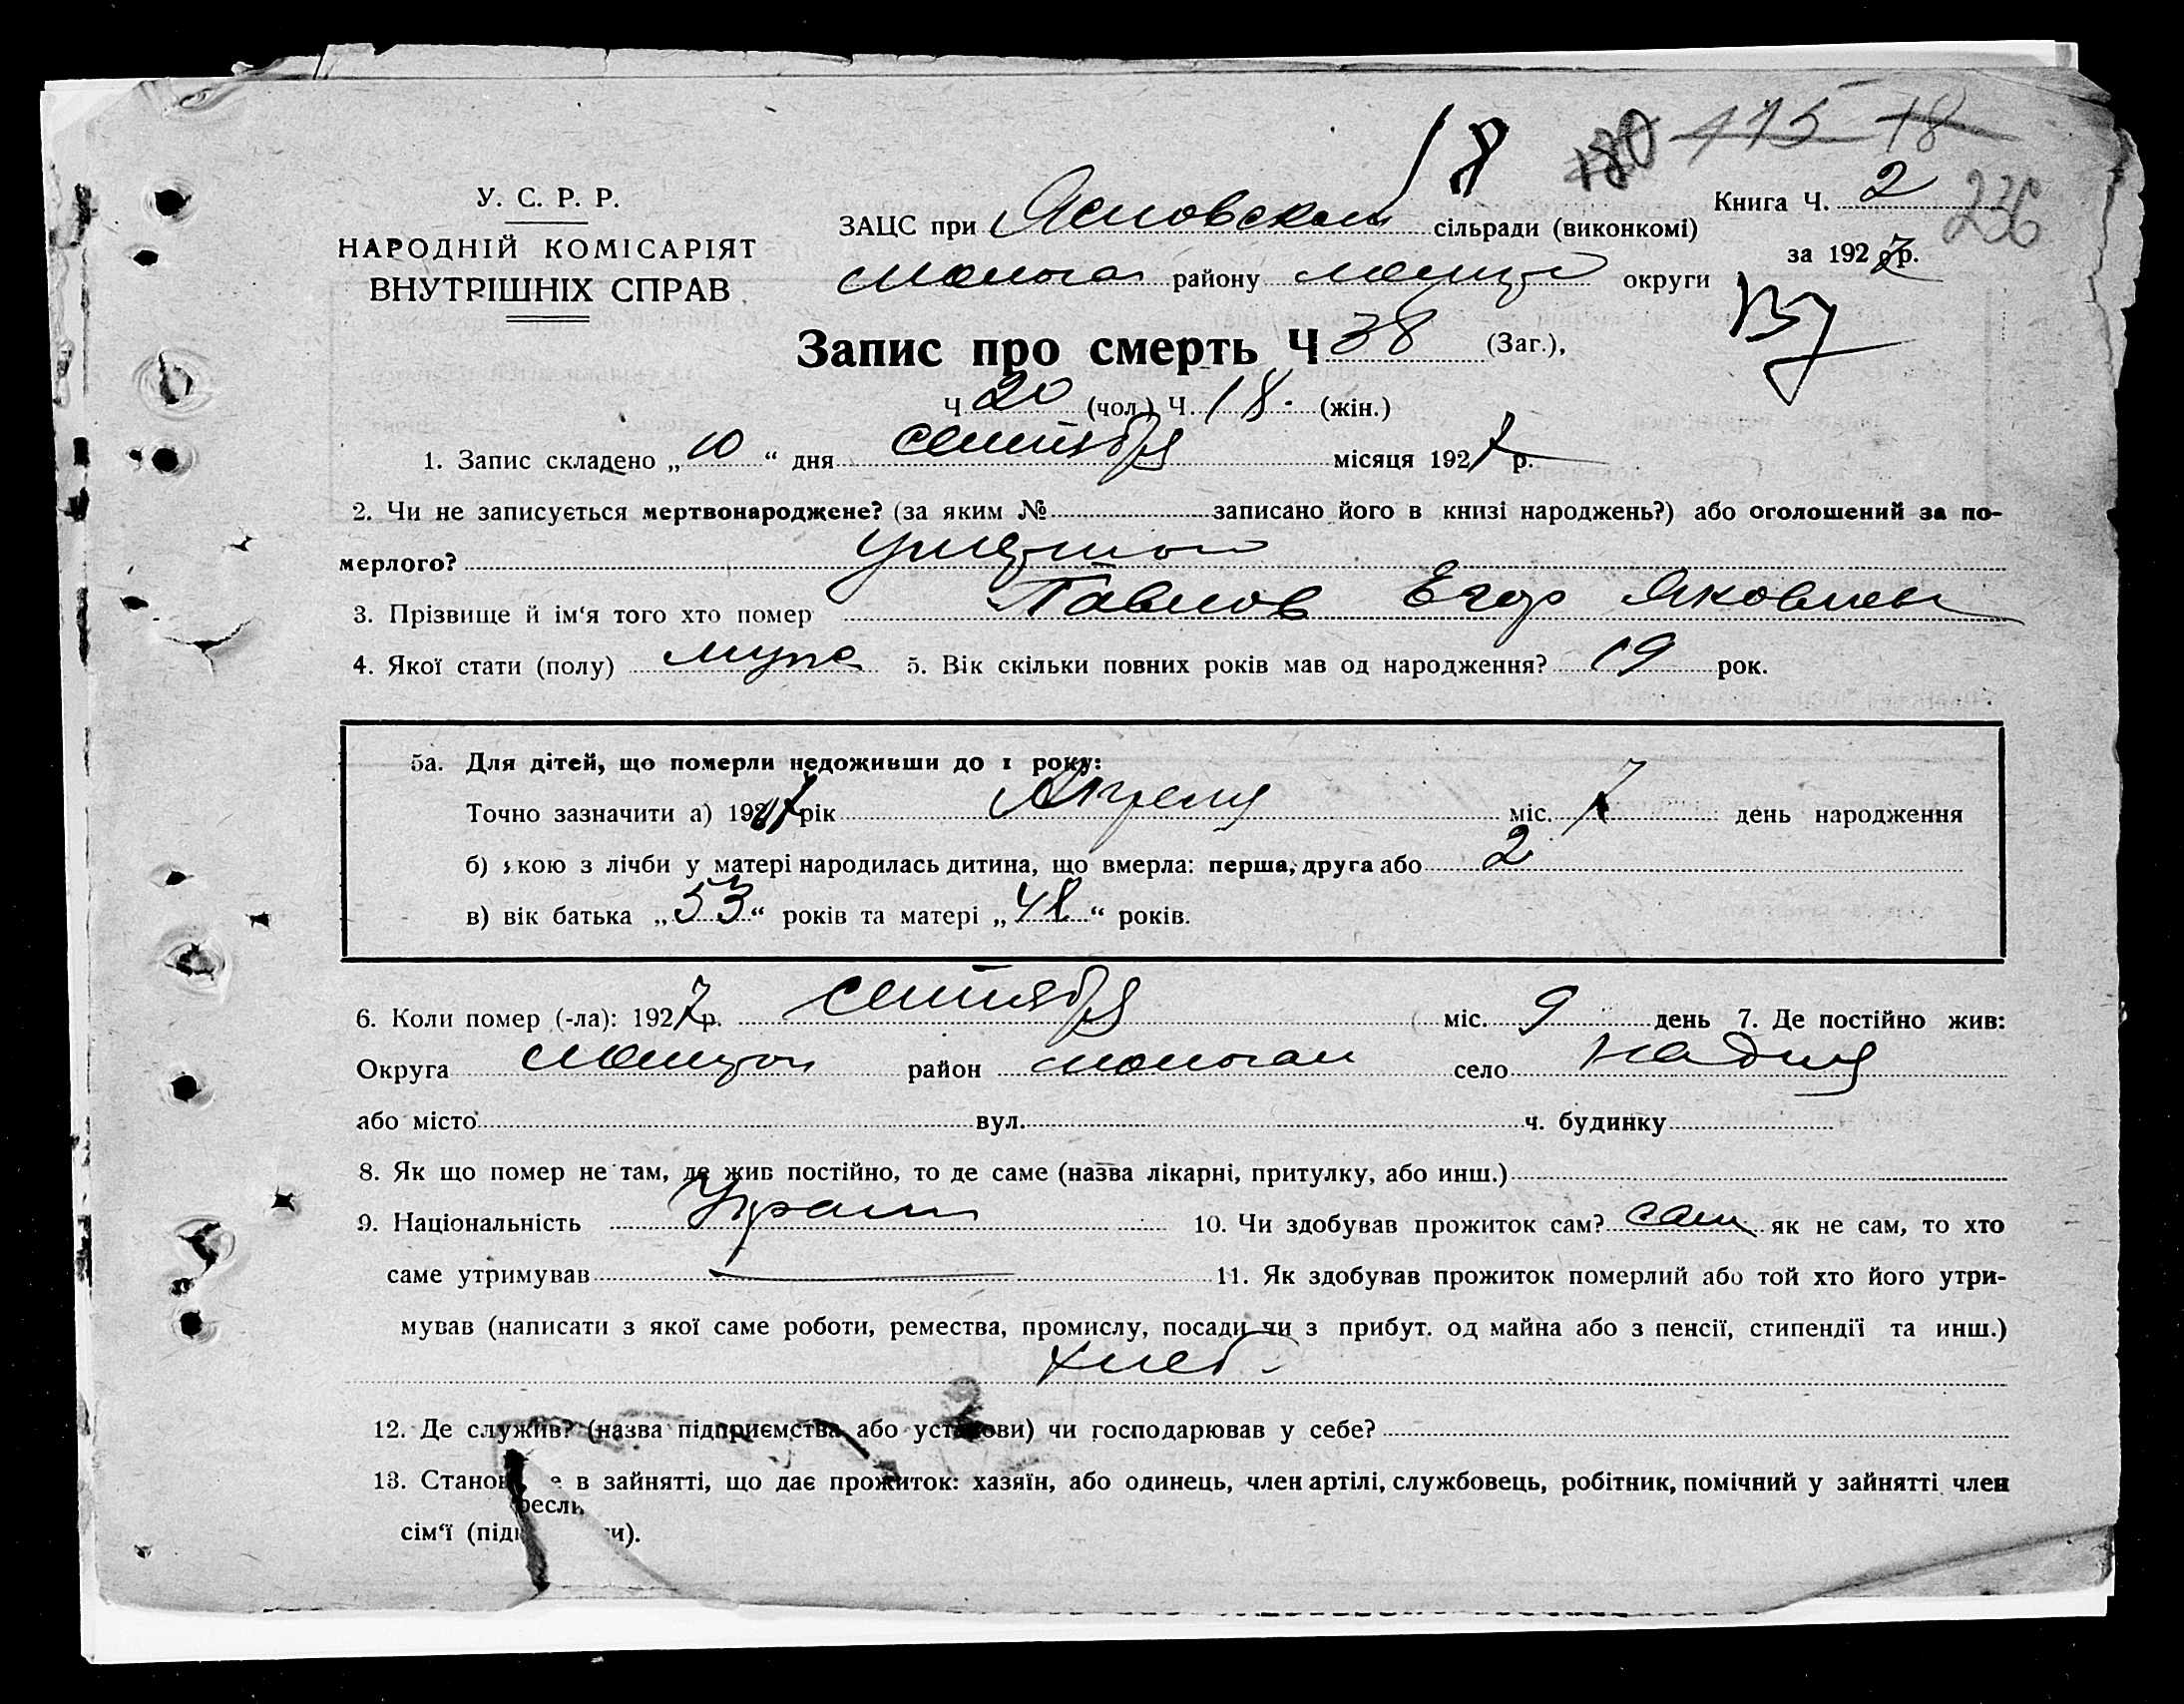 18 180 115 18
У. С. Р. Р.
НАРОДНІЙ КОМІСАРІЯТ
ВНУТРІШНІХ СПРАВ
Книга Ч. 2 236
за 1927 р.
ЗАЦС при сільради (виконкомі)
району округи
Запис про смерть Ч 38 (Заг.),
Ч 20 (чол.) Ч. 18. (жін.)
1. Запис складено „10“ дня сентября місяця 1927 р.
2. Чи не записується мертвонароджене? (за яким № записано його в книзі народжень?) або оголошений за по-
мерлого?
3. Прізвище й ім'я того хто помер Павлов Егор Яковлев
4. Якої стати (полу) муже 5. Вік скільки повних років мав од народження? 19 рок.
5а. Для дітей, що померли недоживши до 1 року:
Точно зазначити а) 1927 рік Апреля міс. 7 день народження
б) якою з лічби у матері народилась дитина, що вмерла: перша, друга або 2
в) вік батька „53“ років та матері „48“ років.
6. Коли помер (-ла): 1927 р. сентября міс. 9 день 7. Де постійно жив:
Округа район село
або місто вул. ч. будинку
8. Як що помер не там, де жив постійно, то де саме (назва лікарні, притулку, або инш.)
9. Національність 10. Чи здобував прожиток сам? сам як не сам, то хто
саме утримував 11. Як здобував прожиток померлий або той хто його утри-
мував (написати з якої саме роботи, ремества, промислу, посади чи з прибут. од майна або з пенсії, стипендії та инш.)
хлеб.
12. Де служив? (назва підприємства або установи) чи господарював у себе?
13. Станов е в зайнятті, що дає прожиток: хазяїн, або одинець, член артілі, службовець, робітник, помічний у зайнятті член
ресли
сім'ї (підк и).